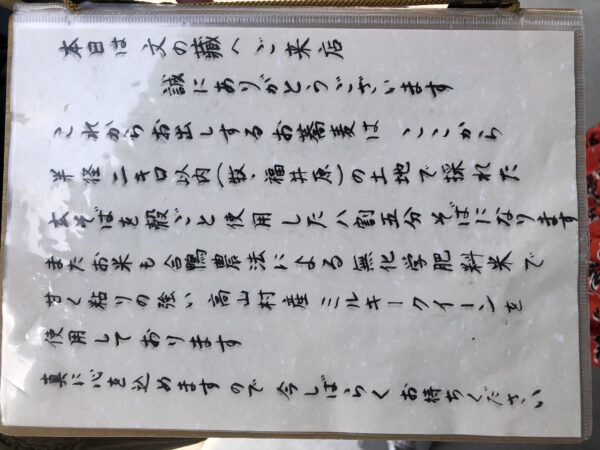 本日は文の蔵へご来店
誠にありがとうございます
これからお出しするお蕎麦は、ここから
半径二キロ以内(牧、福井原)の土地で採れた
玄そばを殻ごと使用した八割五分そばになります
またお米も合鴨農法による無化学肥料米で
甘く粘りの強い高山村産ミルキークイーンを
使用しております
真に心を込めますので今しばらくお待ちください